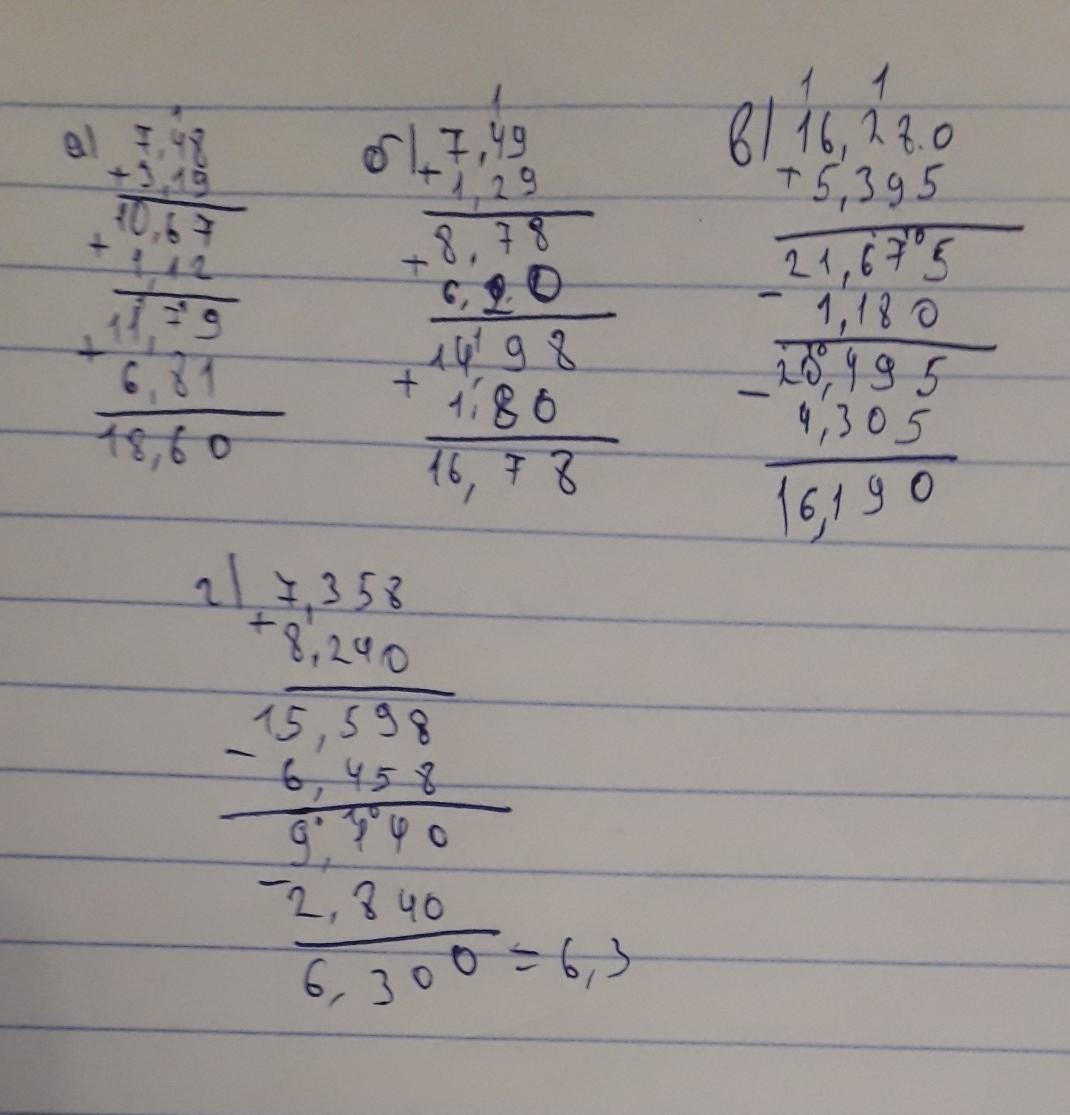 а) 7,48
+3,19
10,67
+
1,12
11,79
+
6,81
18,60
1
б) 7,49
+1,29
8,78
+
6,20
14,98
+
1,80
16,78
1 1
в) 16,28.0
+5,395
21,675
-
1,180
20,495
-
4,305
16,190
г) 7,358
+
8,240
15,598
-
6,458
9,140
-
2,840
6,300 = 6,3